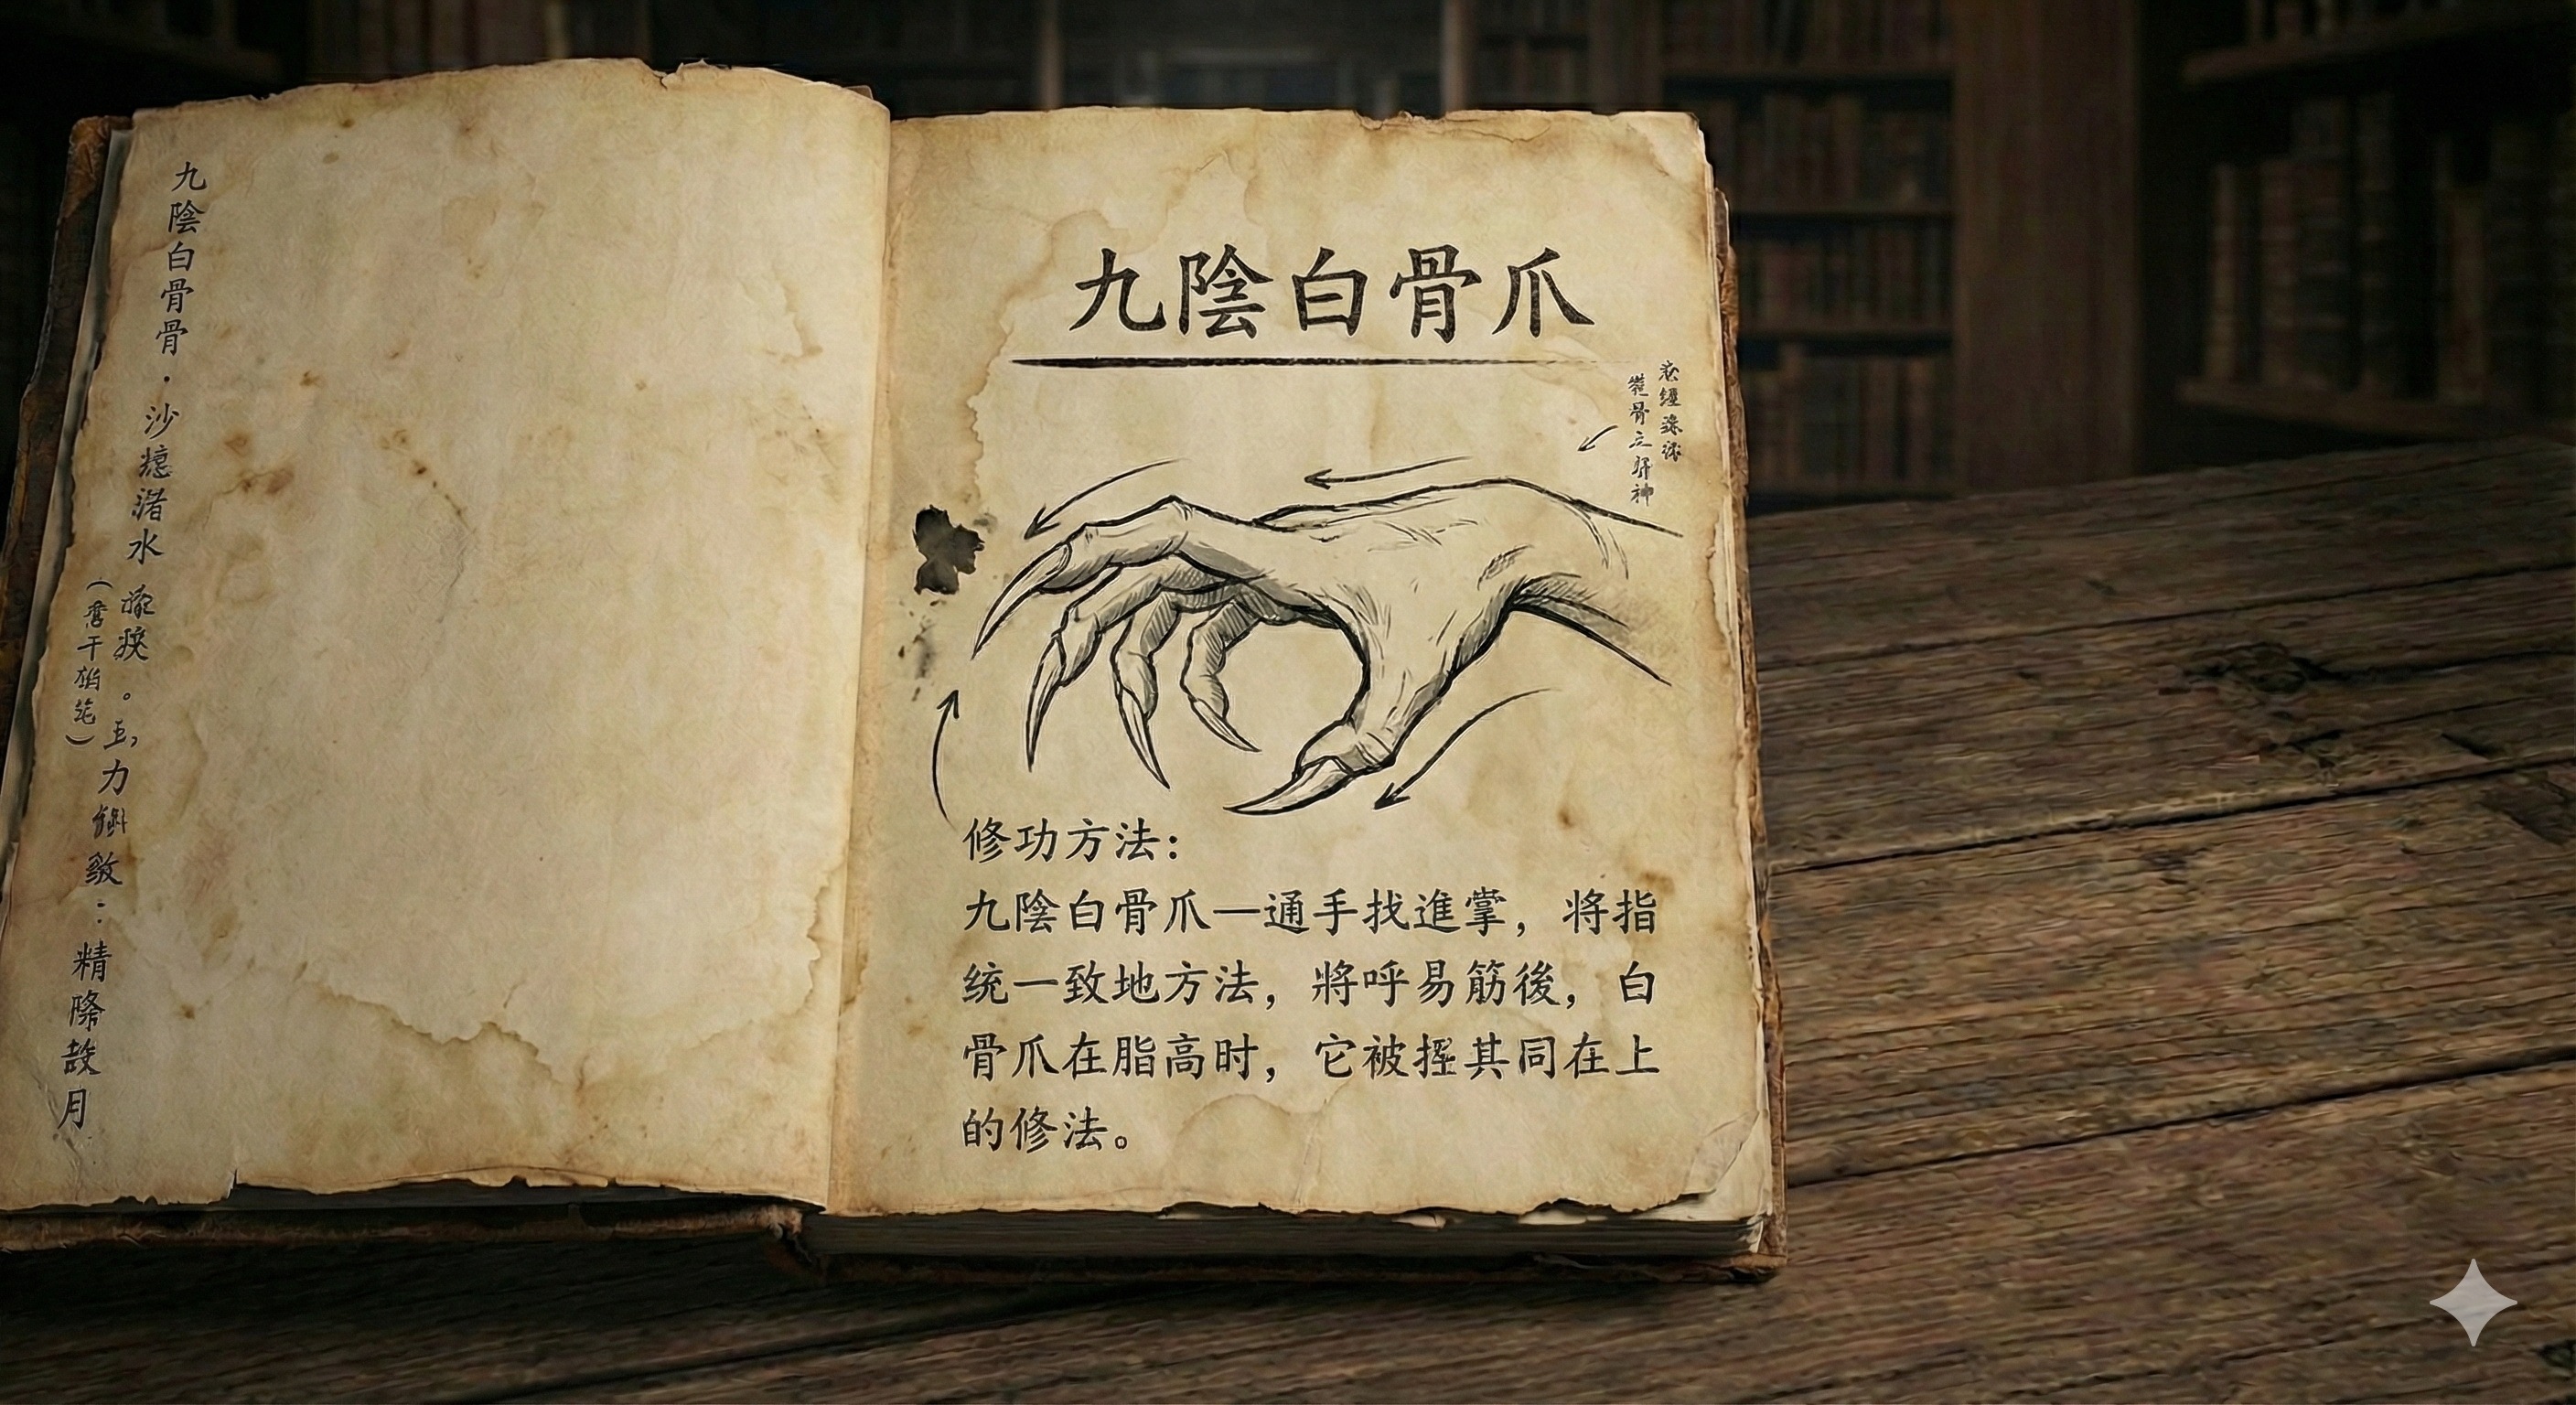 九陰白骨爪
修功方法：
九陰白骨爪—通手找進掌，将指
统一致地方法，將呼易筋後，白
骨爪在脂高时，它被握其同在上
的修法。
九陰白骨骨·沙
水
力
：精
月